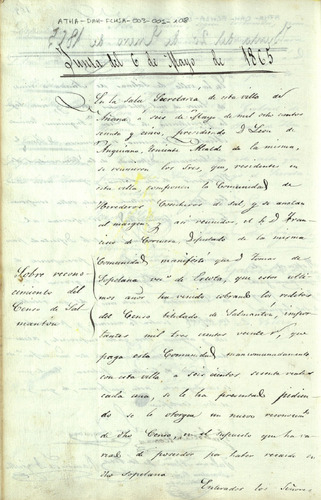 ATHA-DAH-FCHSA-003-002-108
Junta del 6 de Mayo de 1865
En la sala Secretaria de esta villa de
Añana a seis de Mayo de mil ochocientos
sesenta y cinco, presidiendo D. Leon de
Angui​ano, teniente Alcalde de la misma,
se reunieron los Sres, que, residentes en
esta villa, componen la Comunidad de
Herederos Caballeros de sal, y se anotan
al margen, y así reunidos, el D. Fran-
cisco de Diputado de la misma
Comunidad manifestó que D. Tomas de
Sopelana vno. de que estos ulti-
mos años ha venido cobrando los reditos
del Censo titulado de Salmanton, impor-
tantes mil tres cientos veinte r.s, que
paga esta Comunidad mancomunadamente
con esta villa, a seis cientos sesenta reales
cada una, se le ha presentado pidien-
do se le otorgue un nuevo reconocim.to
de dho Censo, en el supuesto que ha va-
riado de poseedor por haber recaido en
dho Sopelana
Enterados los Señores
Sobre recono-
cimiento del
Censo de Sal-
manton